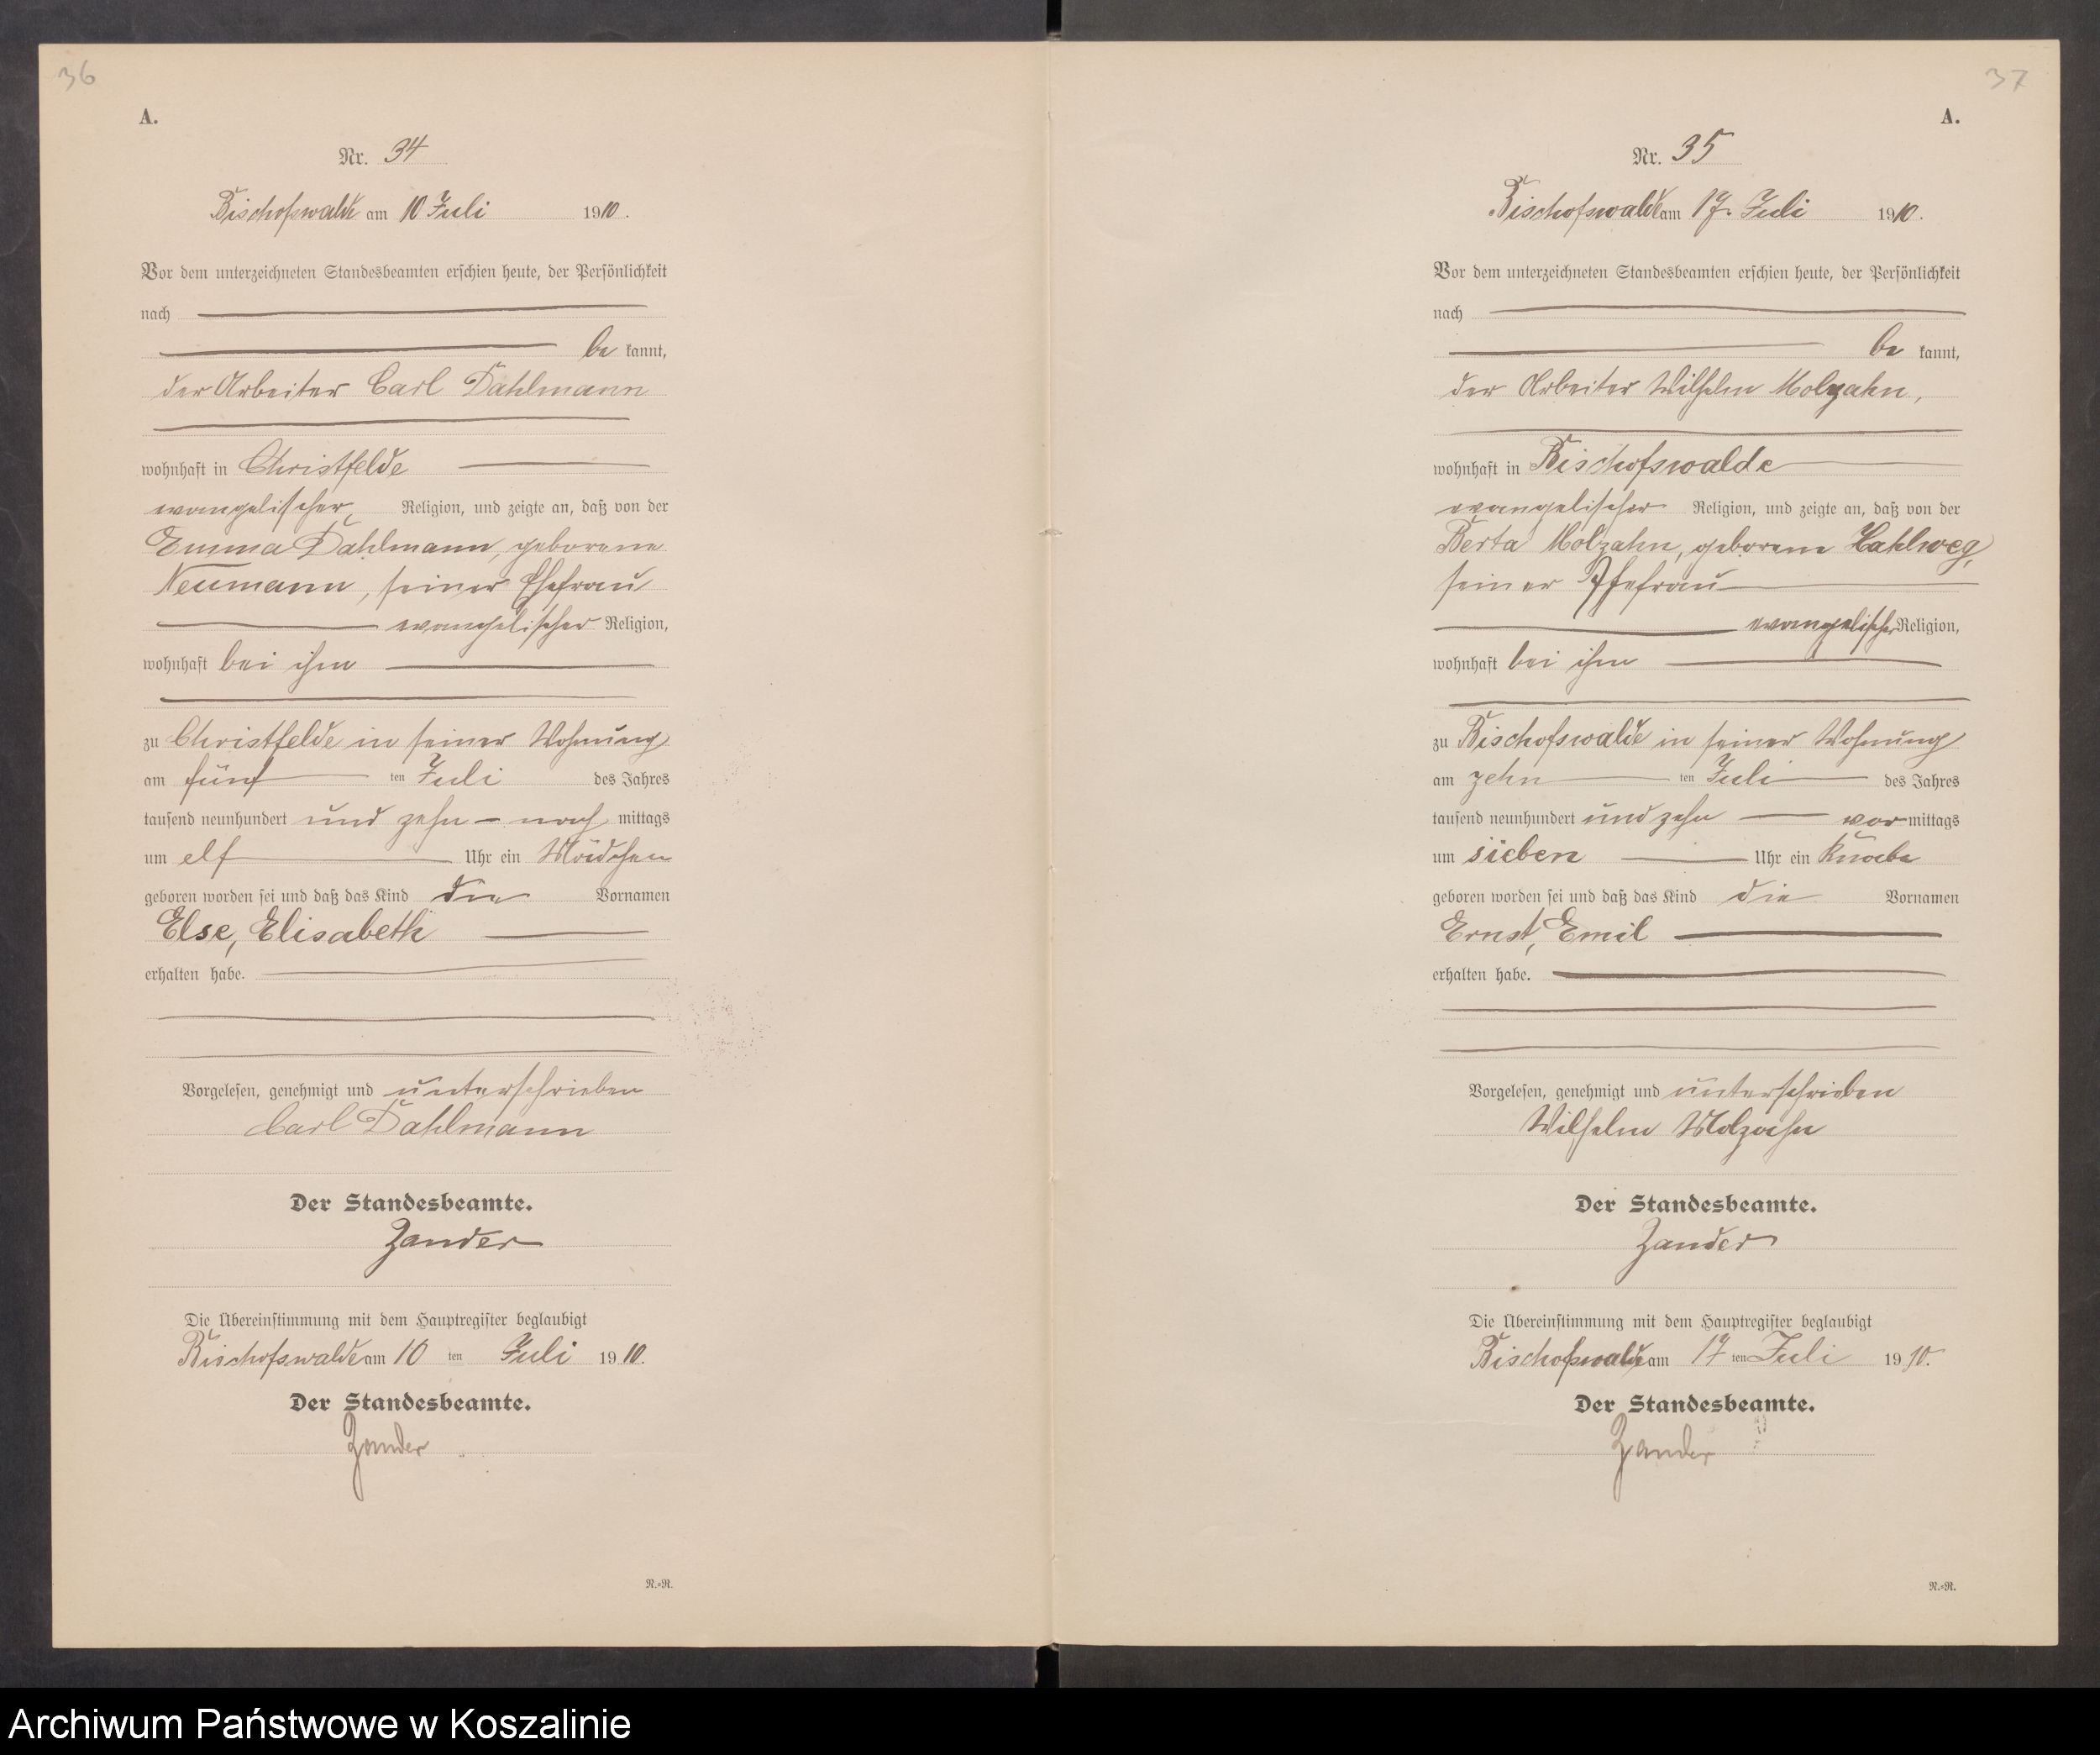 36
A.
Nr. 34
Bischofswalde am 10 Juli 1910.
Vor dem unterzeichneten Standesbeamten erschien heute, der Persönlichkeit
nach
be kannt,
der Arbeiter Carl Dahlmann
wohnhaft in Christfelde
evangelischer Religion, und zeigte an, daß von der
Emma Dahlmann, geborene
Neumann, seiner Ehefrau
evangelischer Religion,
wohnhaft bei ihm
zu Christfelde in seiner Wohnung
am fünf ten Juli des Jahres
tausend neunhundert und zehn nach mittags
um elf Uhr ein Mädchen
geboren worden sei und daß das Kind die Vornamen
Else, Elisabeth
erhalten habe.
Vorgelesen, genehmigt und unterschrieben
Carl Dahlmann
Der Standesbeamte.
Zander
Die Übereinstimmung mit dem Hauptregister beglaubigt
Bischofswalde am 10 ten Juli 1910.
Der Standesbeamte.
Zander
N.=R.
37
A.
Nr. 35
Bischofswalde am 17. Juli 1910.
Vor dem unterzeichneten Standesbeamten erschien heute, der Persönlichkeit
nach
be kannt,
der Arbeiter Wilhelm Molzahn,
wohnhaft in Bischofswalde
evangelischer Religion, und zeigte an, daß von der
Berta Molzahn, geborene Hahlweg,
seiner Ehefrau
evangelischer Religion,
wohnhaft bei ihm
zu Bischofswalde in seiner Wohnung
am zehn ten Juli des Jahres
tausend neunhundert und zehn vor mittags
um sieben Uhr ein Knabe
geboren worden sei und daß das Kind die Vornamen
Ernst, Emil
erhalten habe.
Vorgelesen, genehmigt und unterschrieben
Wilhelm Molzahn
Der Standesbeamte.
Zander
Die Übereinstimmung mit dem Hauptregister beglaubigt
Bischofswalde am 17 ten Juli 1910.
Der Standesbeamte.
Zander
N.=R.
Archiwum Państwowe w Koszalinie